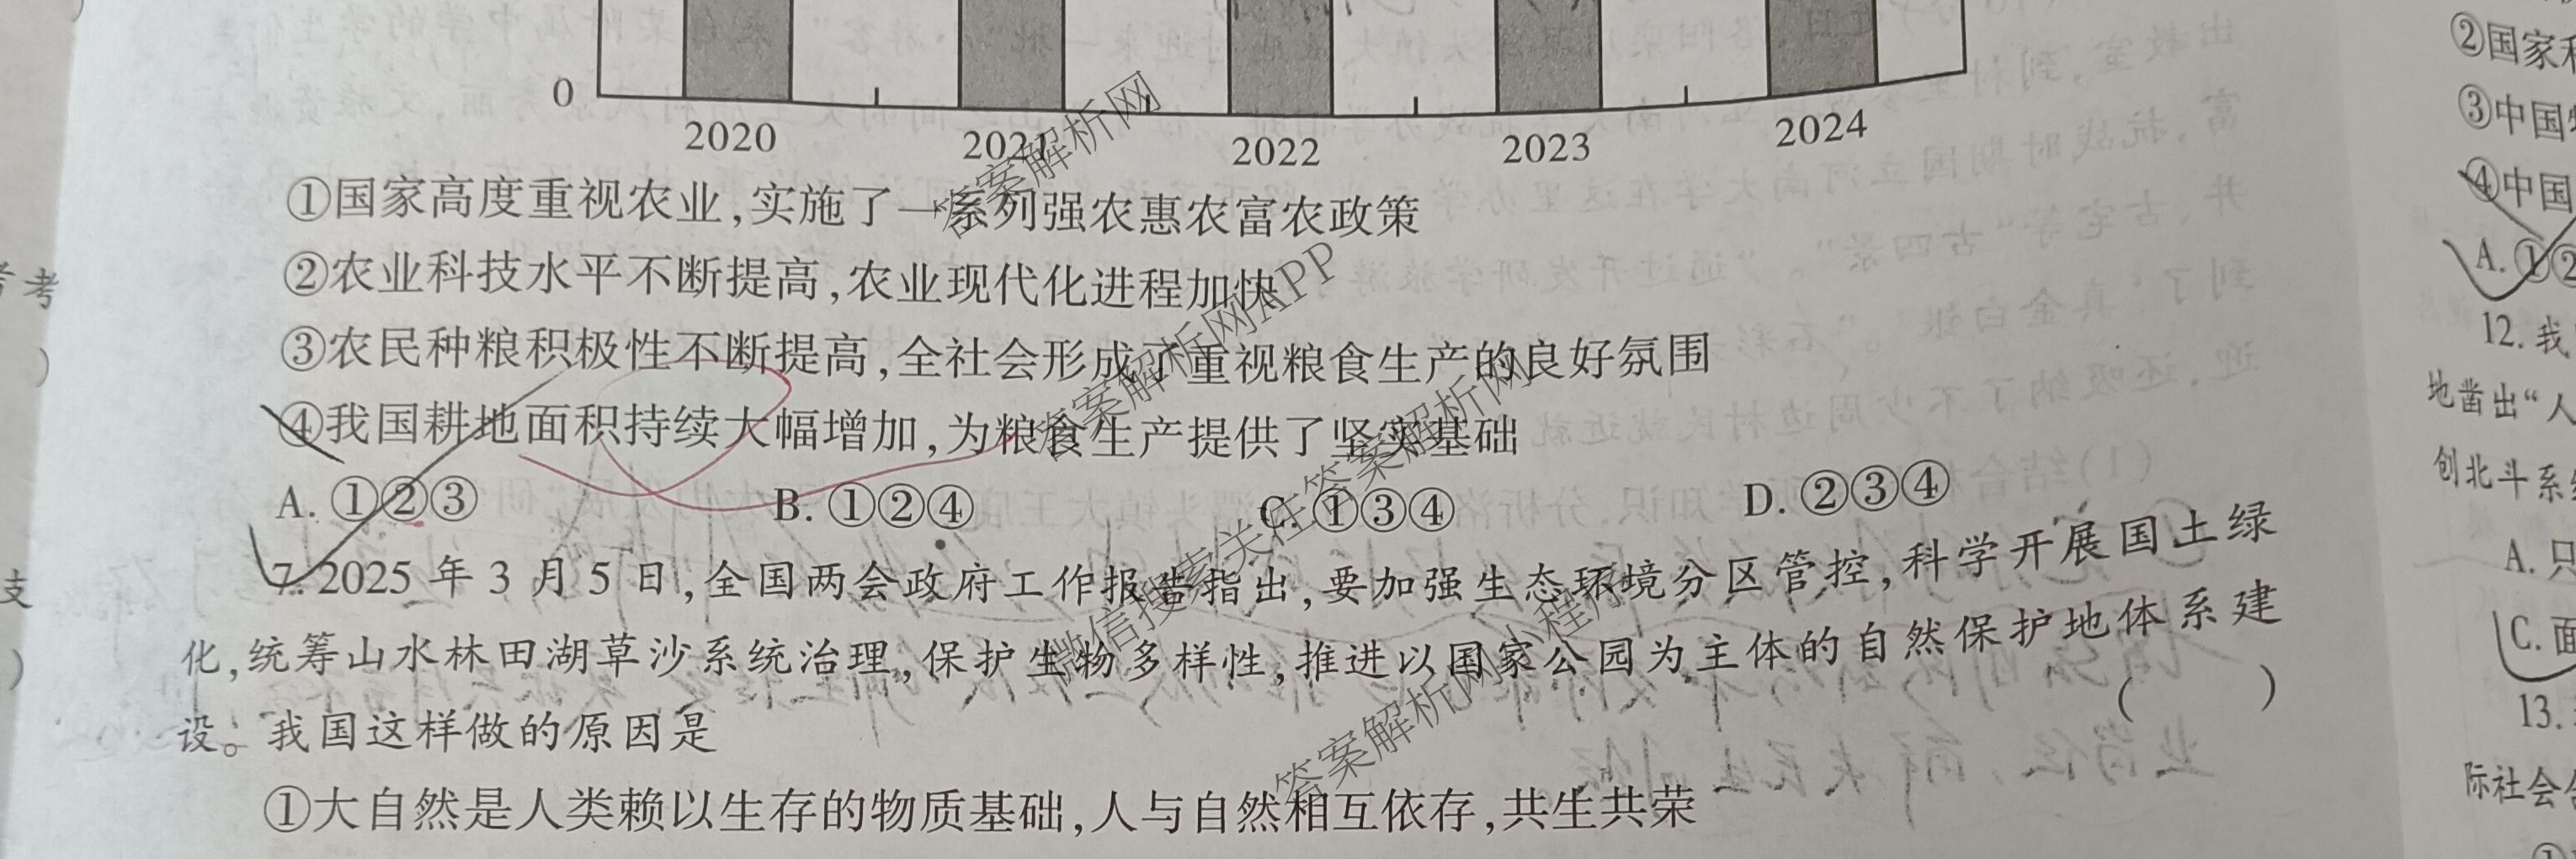 0
2020 2021 2022 2023 2024
①国家高度重视农业,实施了一系列强农惠农富农政策
②农业科技水平不断提高,农业现代化进程加快
③农民种粮积极性不断提高,全社会形成了重视粮食生产的良好氛围
④我国耕地面积持续大幅增加,为粮食生产提供了坚实基础
A. ①②③ B. ①②④ C. ①③④ D. ②③④
7. 2025 年 3 月 5 日,全国两会政府工作报告指出,要加强生态环境分区管控,科学开展国土绿
化,统筹山水林田湖草沙系统治理,保护生物多样性,推进以国家公园为主体的自然保护地体系建
设。我国这样做的原因是 ( )
①大自然是人类赖以生存的物质基础,人与自然相互依存,共生共荣
考
支
)
)
②国家
③中国
④中国
A. ①②
12. 我
地凿出“人
创北斗系
A. 只
C. 面
13.
际社会
答案解析网
答案解析网APP
微信搜索关注答案解析网
答案解析网小程序